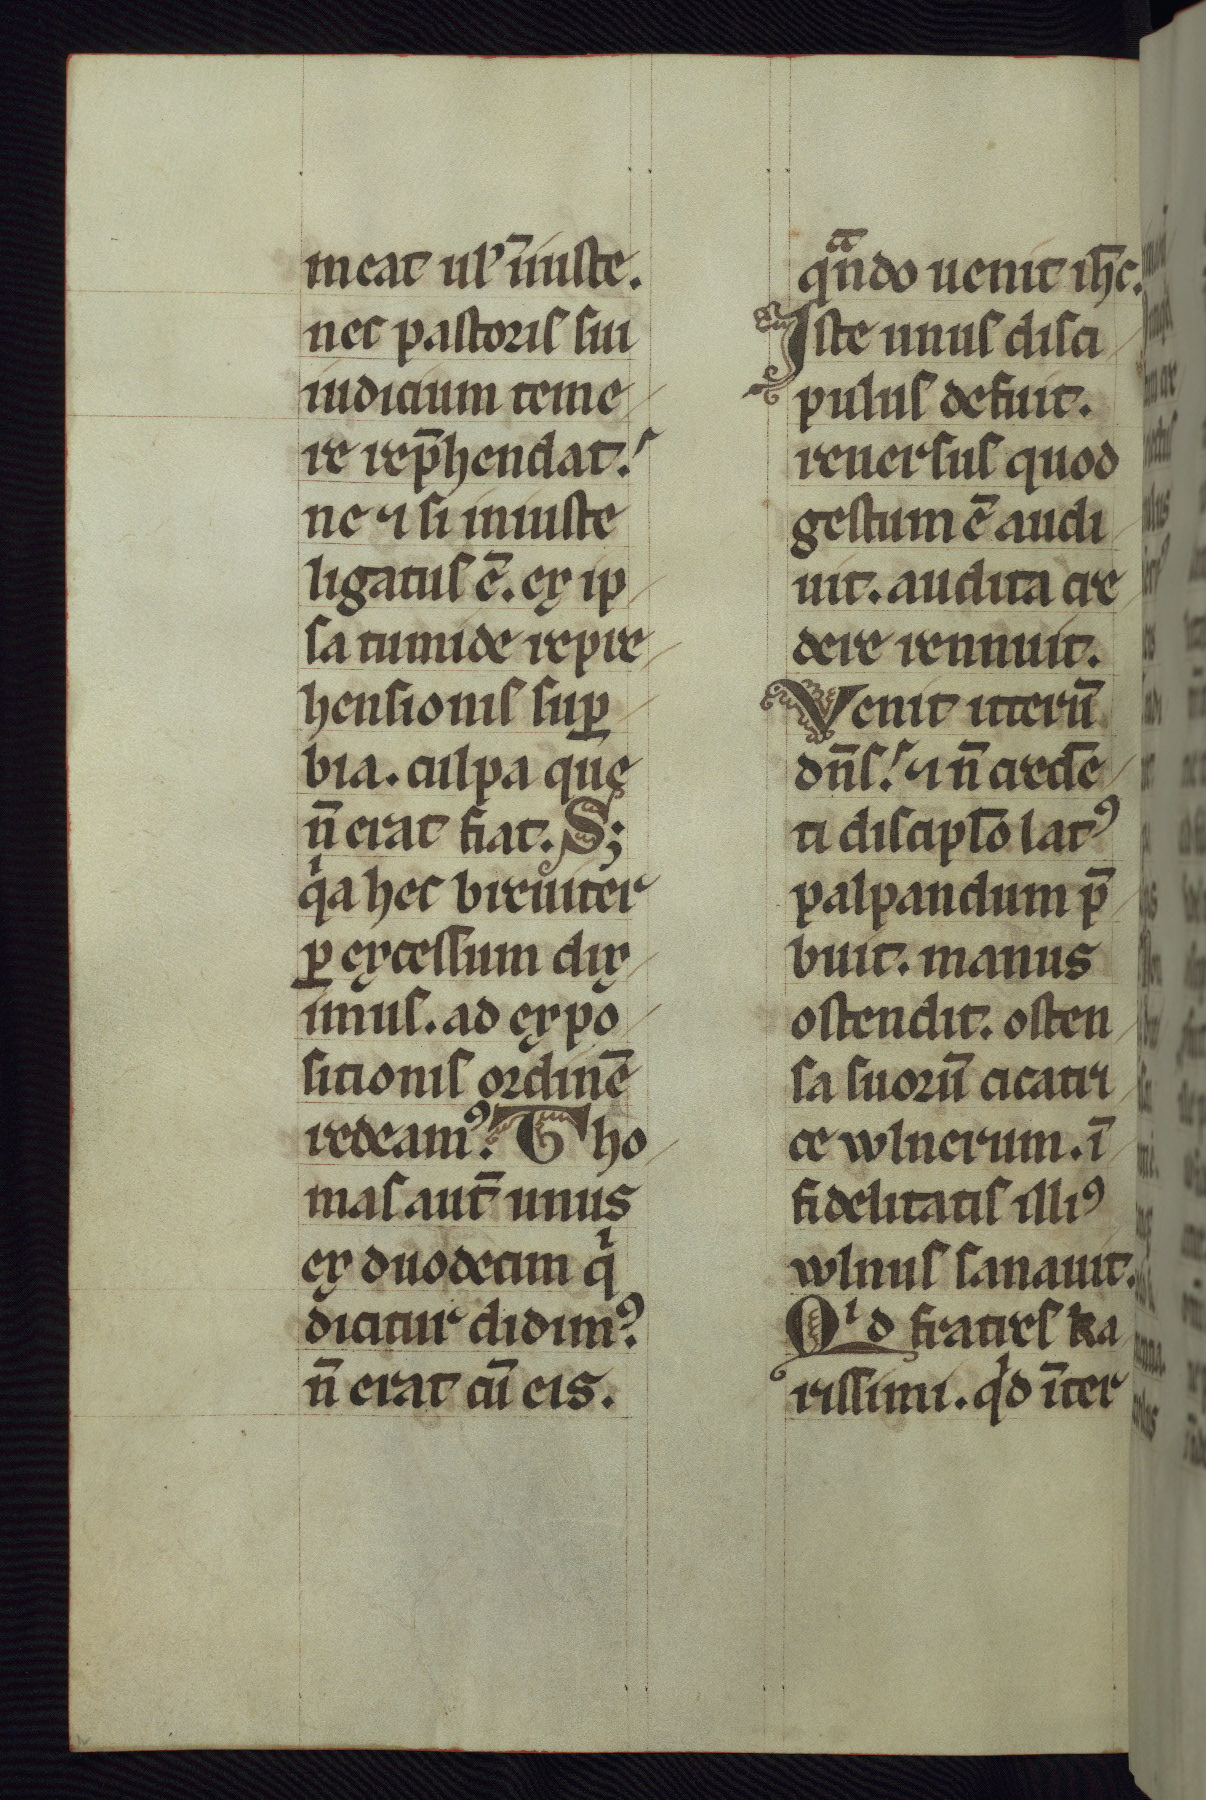 meat ul' iniuste.
nec pastoris sui
iudicium teme
re rep̄hendat.
ne ⁊ si iniuste
ligatus ē. ex ip
sa tumide repre
hensionis suꝑ
bia. culpa que
n̄ erat fiat. S;
qͥa hec breuiter
ꝑ excessum dix
imus. ad expo
sitionis ordinē
redeamꝰ. Tho
mas aut̄ unus
ex duodecim qͥ
dicitur didimꝰ.
n̄ erat cū eis.
qᷓndo uenit ihc̄.
Iste unus disci
pulus defuit.
reuersus quod
gestum ē audi
uit. audita cre
dere rennuit.
Venit iterū
dn̄s. ⁊ n̄ credē
ti discipl̄o latꝰ
palpandum p̄
buit. manus
ostendit. osten
sa suorū cicatri
ce wlnerum. ī
fidelitatis illiꝰ
wlnus sanauit.
Qͥd fratres ka
rissimi. qͥd īter